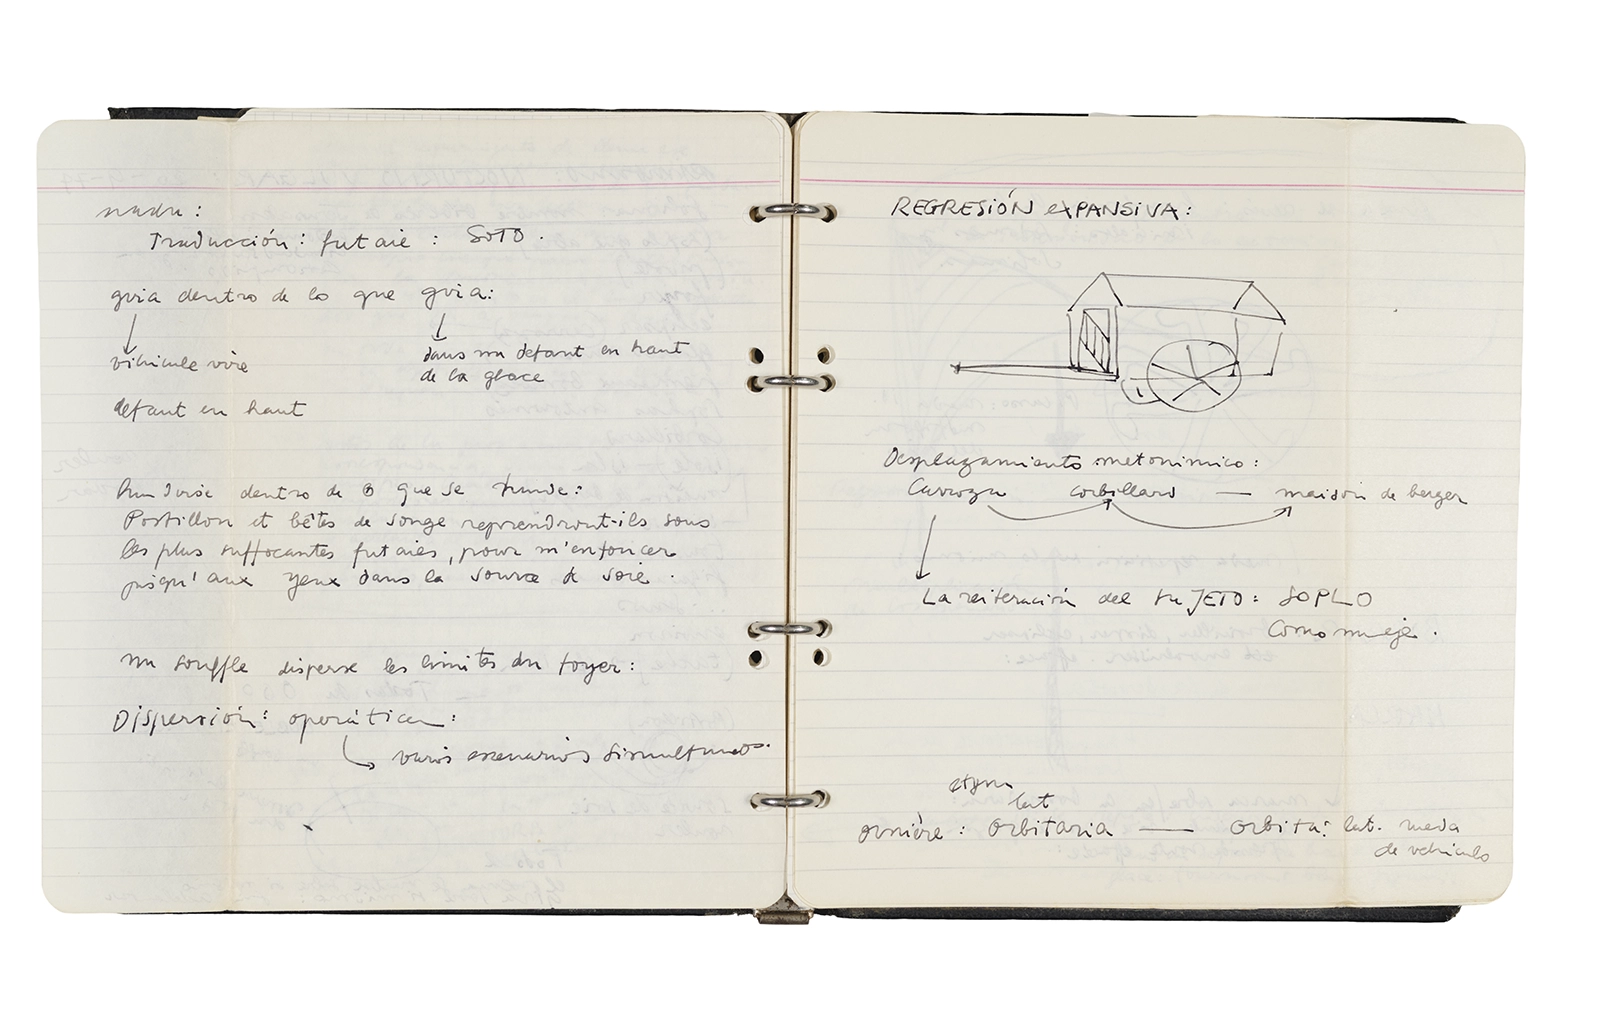 Traducción: futaie: SOTO.
guia dentro de lo que guia:
véhicule vire
dans un défaut en haut
de la glace
défaut en haut
dentro de lo que se hunde:
Postillon et bêtes de songe reprendront-ils sous
les plus suffocantes futaies, pour m'enfoncer
jusqu'aux yeux dans la source de soie.
un souffle disperse les limites du foyer:
Dispersión: operática:
varios escenarios simultaneos.
REGRESIÓN EXPANSIVA:
Desplazamiento metonimico:
Carroza corbillard — maison de berger
La reiteración del SUJETO: SOPLO
como rueje.
etym
lat
ornière: orbitaria — orbita: lat. rueda
de vehiculo